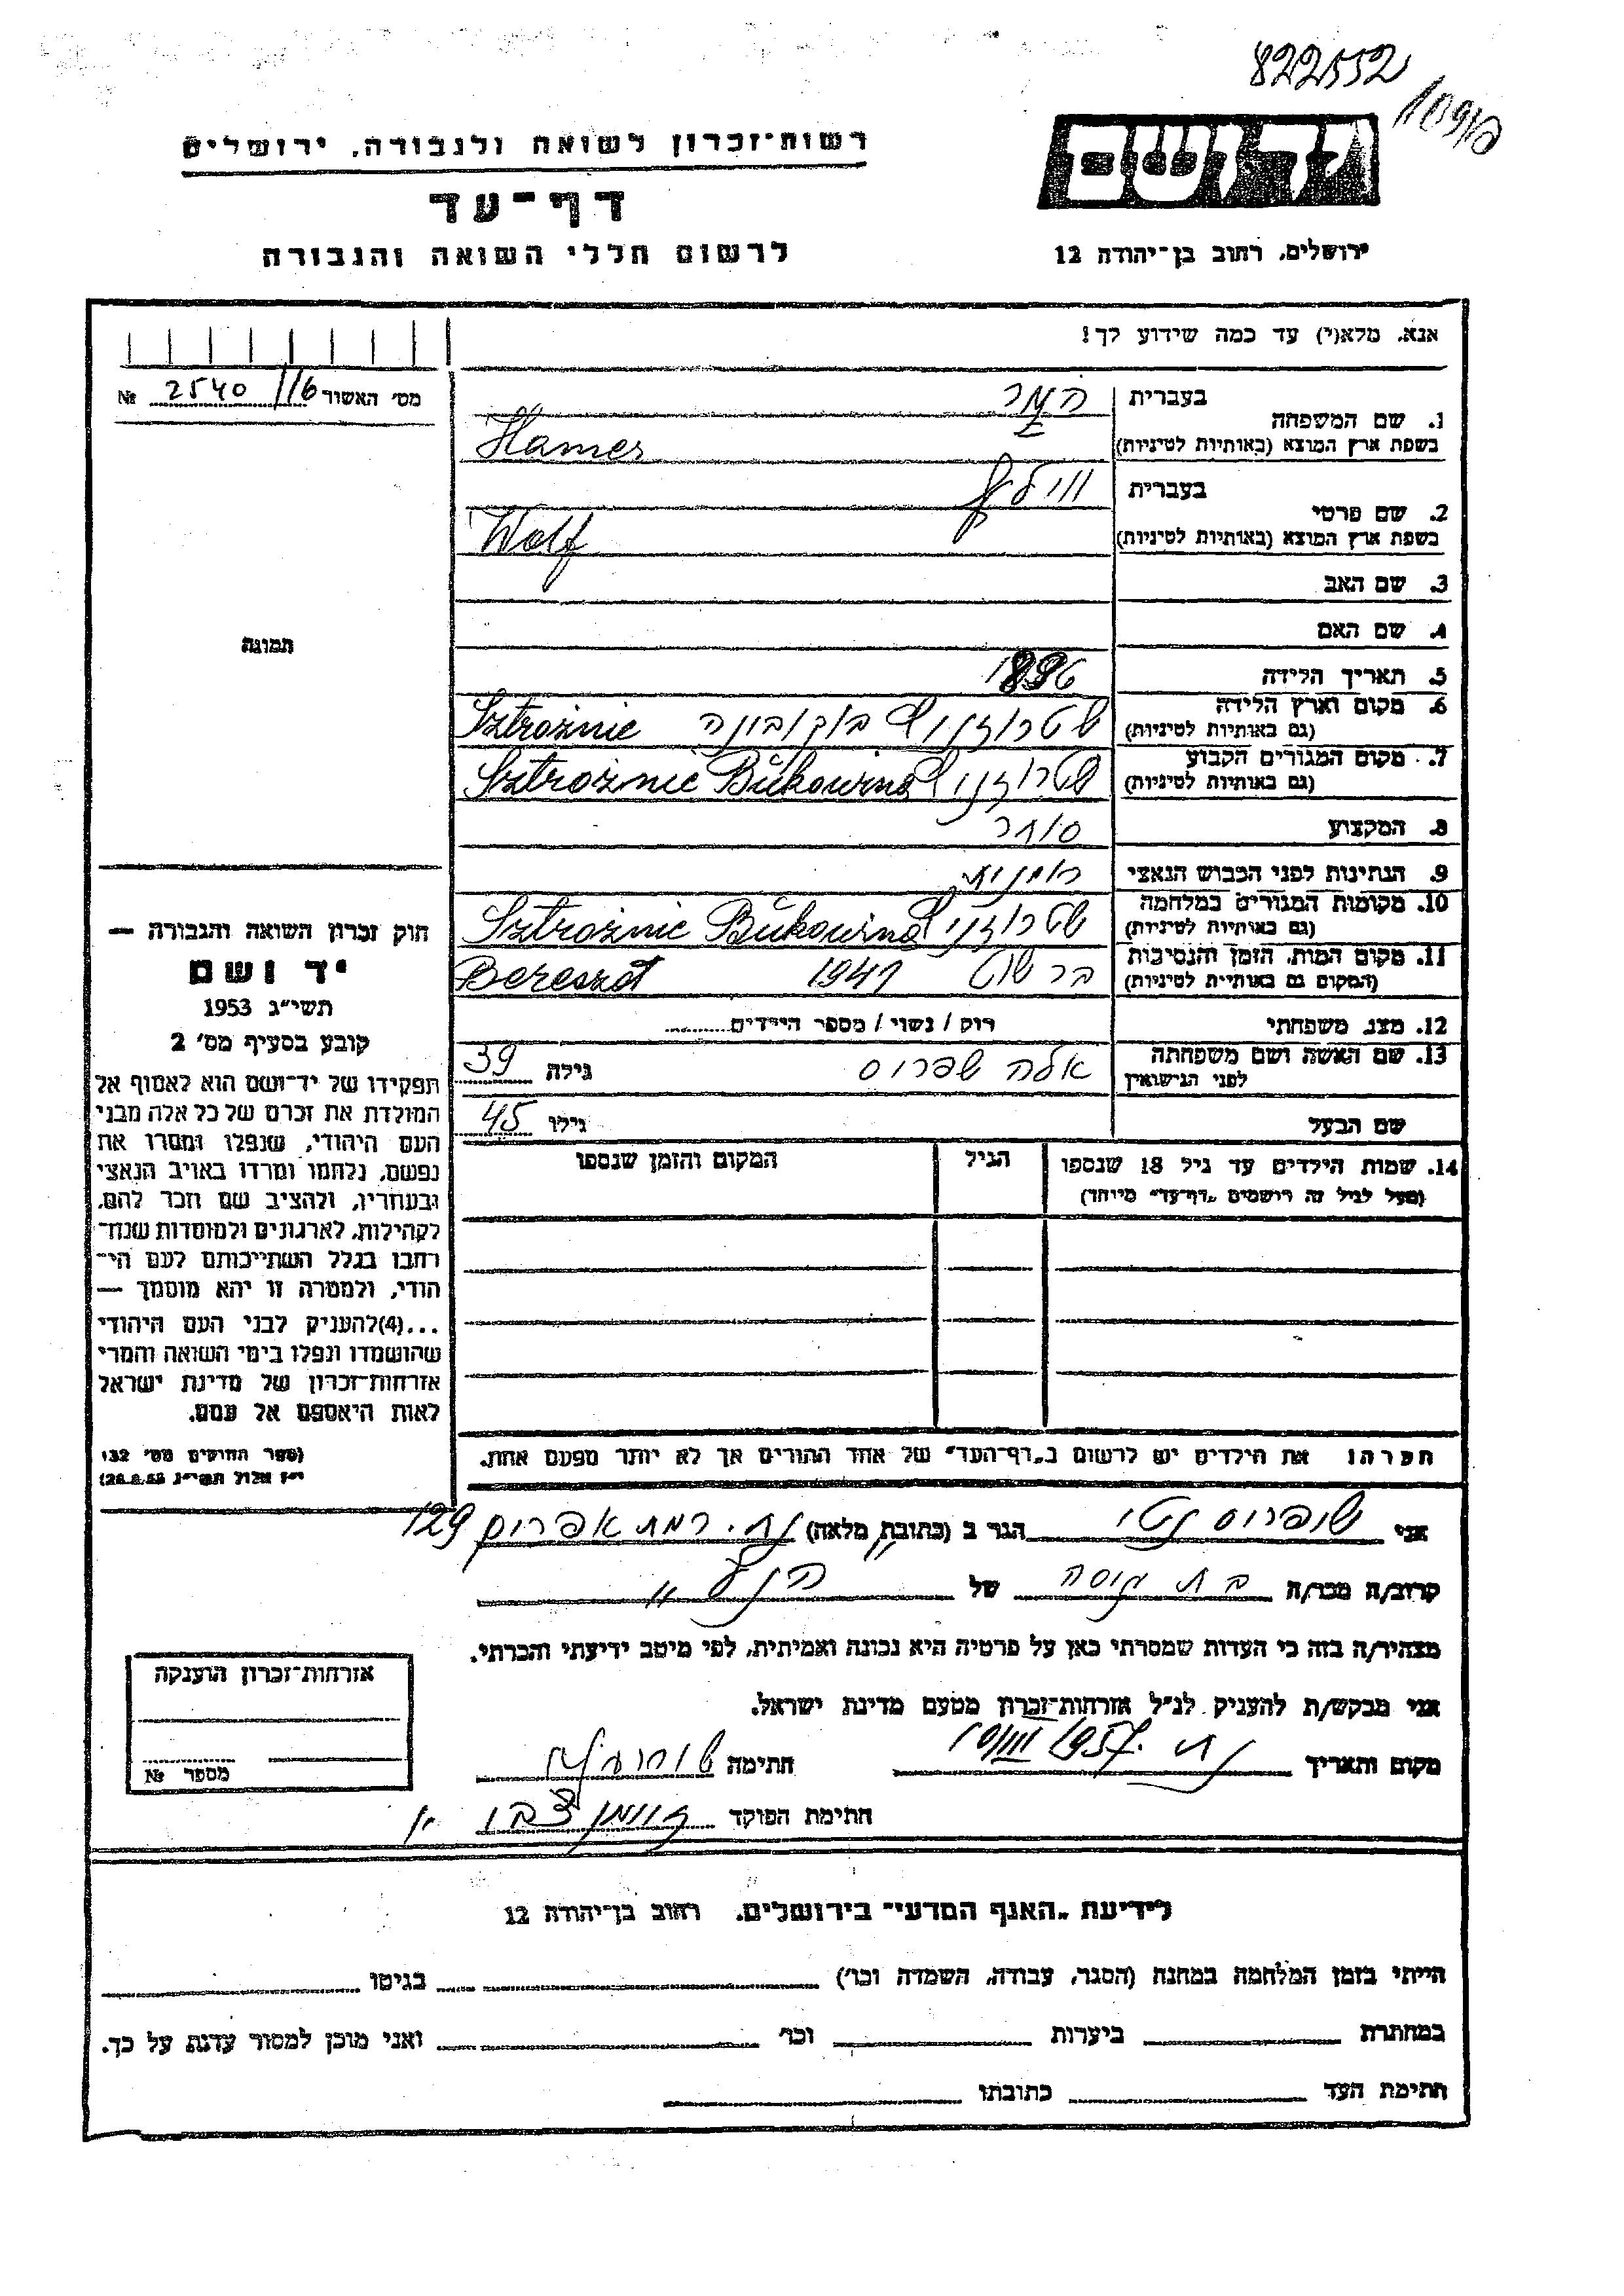 822552
רשות-זכרון לשואה ולגבורה, ירושלים
יד ושם
דף-עד
לרשום חללי השואה והגבורה
ירושלים, רחוב בן-יהודה 12
אנא, מלא(י) עד כמה שידוע לך!
מס' האשור 116/ 2540 №
1. שם המשפחה בעברית המר
בשפת ארץ המוצא (באותיות לטיניות) Hamer
2. שם פרטי בעברית וולף
בשפת ארץ המוצא (באותיות לטיניות) Wolf
3. שם האב
4. שם האם
תמונה
5. תאריך הלידה 1896
6. מקום וארץ הלידה (גם באותיות לטיניות) שטרוזניץ בוקובינה Sztrożnic
7. מקום המגורים הקבוע (גם באותיות לטיניות) שטרוזניץ Sztrożnic Bukowina
8. המקצוע סוחר
9. הנתינות לפני הכבוש הנאצי רומנית
10. מקומות המגורים במלחמה (גם באותיות לטיניות) שטרוזניץ Sztrożnic Bukowina
11. מקום המות, הזמן והנסיבות (המקום גם באותיות לטיניות) ברשט 1941 Bereszat
12. מצב משפחתי רוק / נשוי / מספר הילדים
13. שם האשה ושם משפחתה לפני הנישואין אלה שפרוס גילה 39
שם הבעל גילו 45
14. שמות הילדים עד גיל 18 שנספו הגיל המקום והזמן שנספו
(מעל לגיל זה רושמים „דף-עד" מיוחד)
חוק זכרון השואה והגבורה —
יד ושם
תשי"ג 1953
קובע בסעיף מס' 2
תפקידו של יד-ושם הוא לאסוף אל
המולדת את זכרם של כל אלה מבני
העם היהודי, שנפלו ומסרו את
נפשם, נלחמו ומרדו באויב הנאצי
ובעוזריו, ולהציב שם וזכר להם,
לקהילות, לארגונים ולמוסדות שנח-
רבו בגלל השתייכותם לעם הי-
הודי, ולמטרה זו יהא מוסמך —
...(4)להעניק לבני העם היהודי
שהושמדו ונפלו בימי השואה והמרי
אזרחות-זכרון של מדינת ישראל
לאות היאספם אל עמם.
(ספר החוקים מס' 132
י"ז אלול תשי"ג 28.8.53)
הערה: את הילדים יש לרשום ב„דף-העד" של אחד ההורים אך לא יותר מפעם אחת.
אני שפרוס נטי הגר ב (כתובת מלאה) נת. רמת אפרים 129
קרוב/ה מכר/ה גיסה של הנ"ל
מצהיר/ה בזה כי העדות שמסרתי כאן על פרטיה היא נכונה ואמיתית, לפי מיטב ידיעתי והכרתי.
אני מבקש/ת להעניק לנ"ל אזרחות-זכרון מטעם מדינת ישראל.
מקום ותאריך נת. 10/III 1957 חתימה
חתימת הפוקד
אזרחות-זכרון הוענקה
מספר №
לידיעת „האגף המדעי" בירושלים, רחוב בן-יהודה 12
הייתי בזמן המלחמה במחנה (הסגר, עבודה, השמדה וכו') בגיטו
במחתרת ביערות וכו' ואני מוכן למסור עדות על כך.
חתימת העד כתובתו